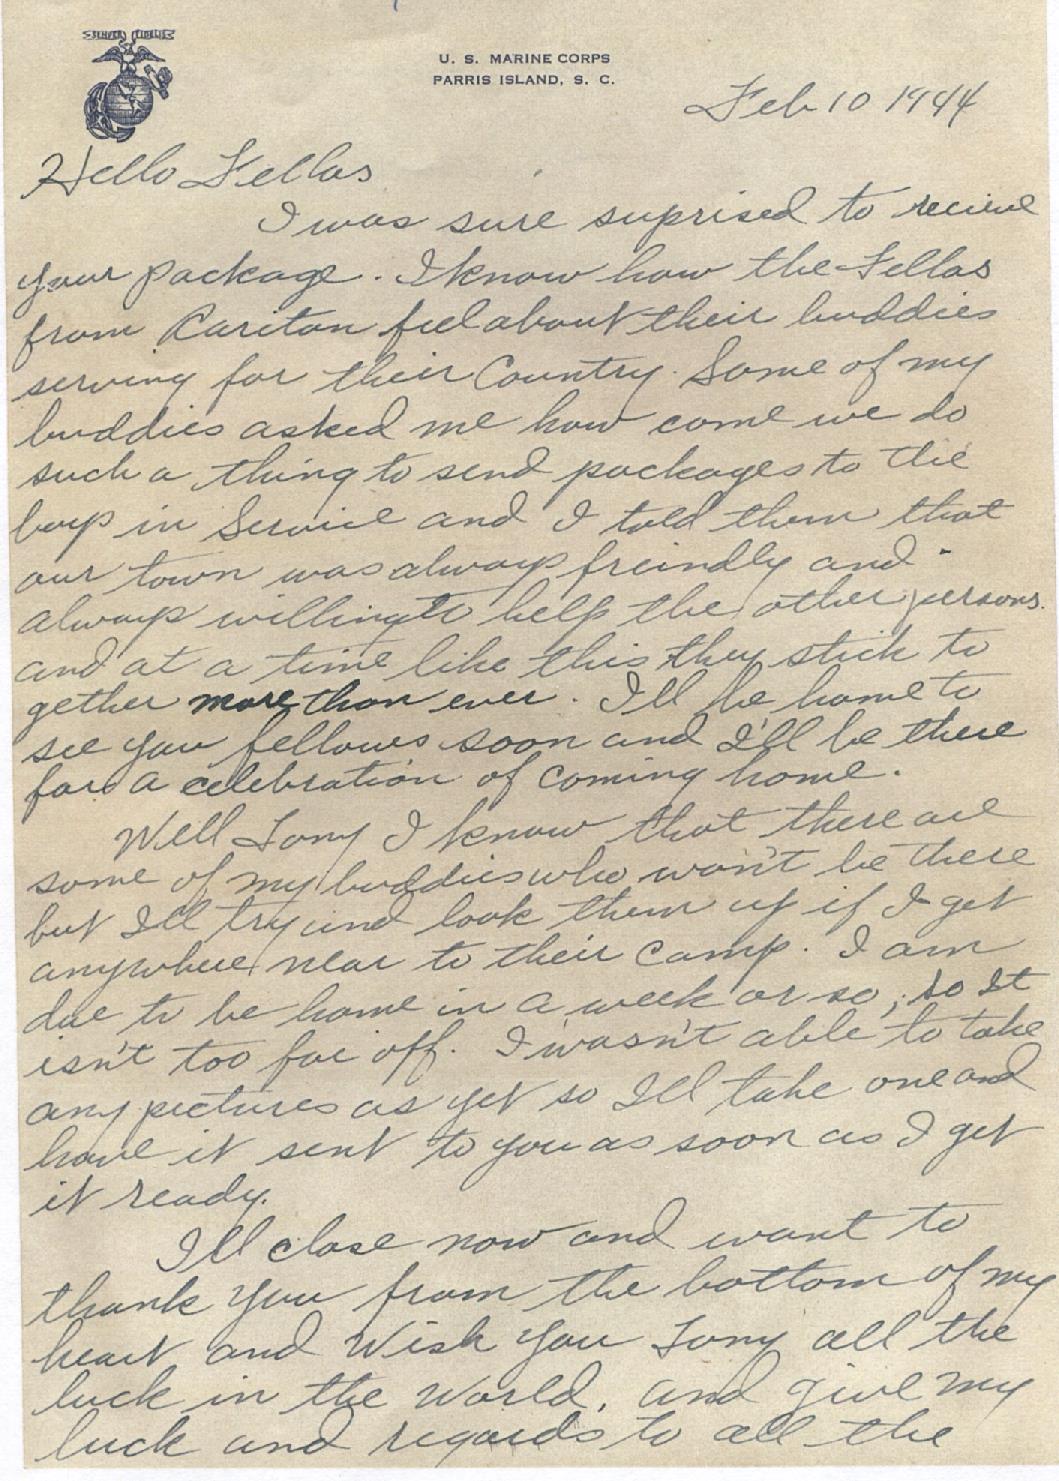 SEMPER FIDELIS
U. S. MARINE CORPS
PARRIS ISLAND, S. C.
Feb 10 1944
Hello Fellas
I was sure suprised to recieve
your package. I know how the Fellas
from Raritan feel about their buddies
serving for their Country. Some of my
buddies asked me how come we do
such a thing to send packages to the
boys in Service and I told them that
our town was always freindly and
always willing to help the other persons.
and at a time like this they stick to
gether more than ever. I'll be home to
see you fellows soon and I'll be there
for a celebration of coming home.
Well Tony I know that there are
some of my buddies who won't be there
but I'll try and look them up if I get
anywhere near to their camp. I am
due to be home in a week or so, so It
isn't too far off. I wasn't able to take
any pictures as yet so I'll take one and
have it sent to you as soon as I get
it ready.
I'll close now and want to
thank you from the bottom of my
heart and Wish you Tony all the
luck in the World, and give my
luck and regards to all the